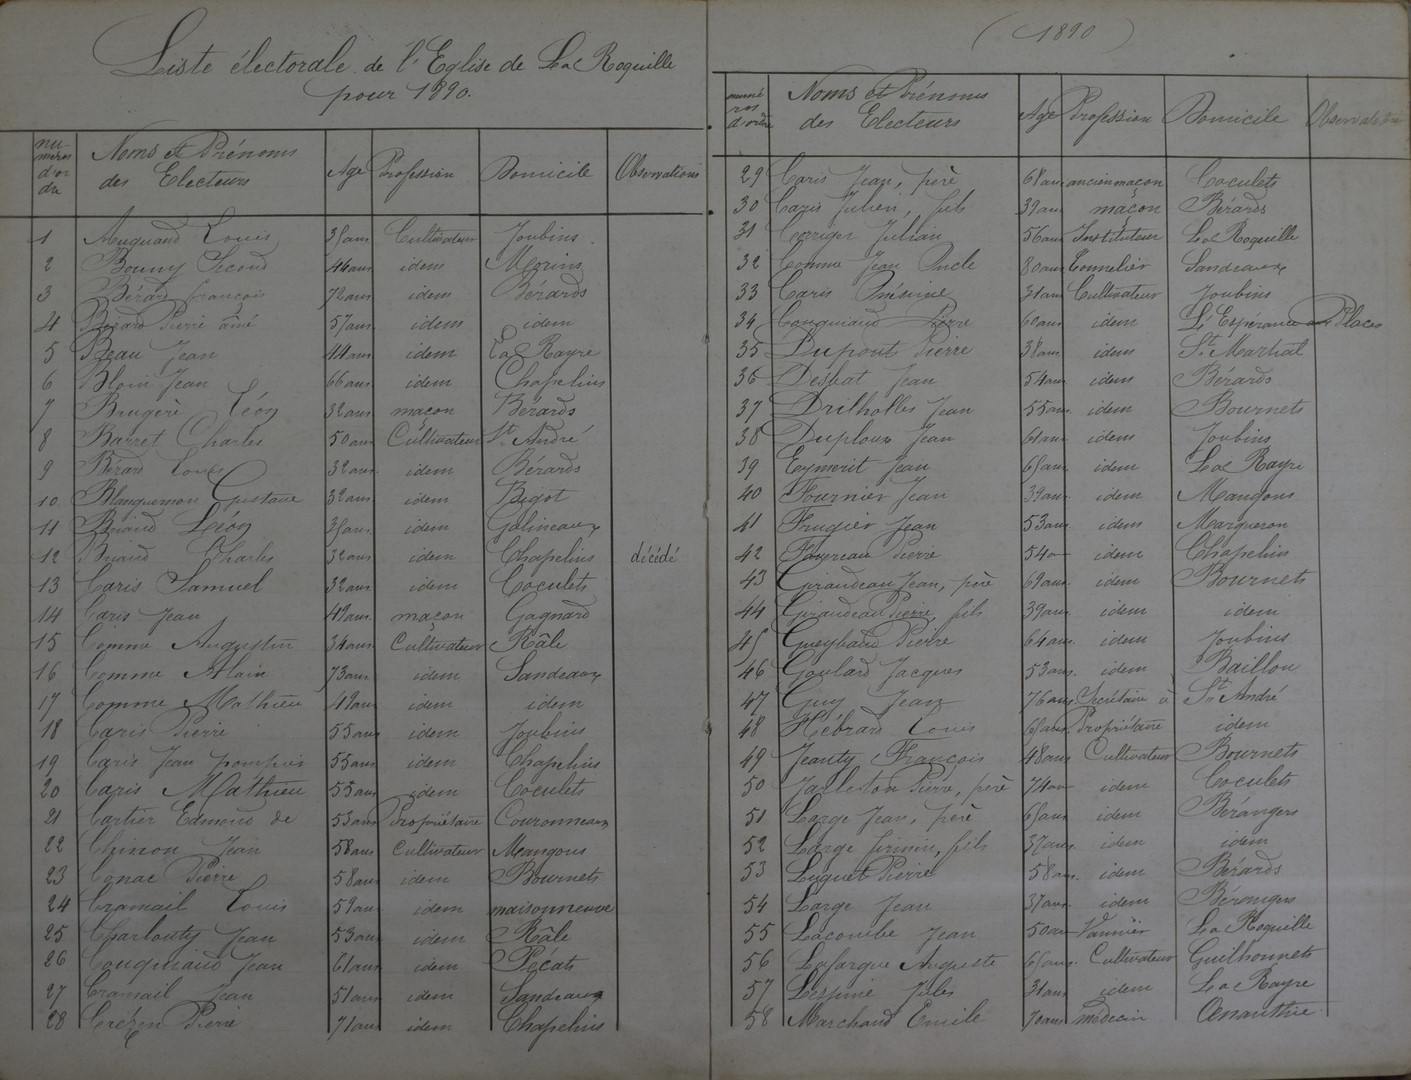 Liste électorale de l'Eglise de La Roquille
pour 1890.
nu-méros d'or dre Noms et Prénoms des Electeurs Age Profession Domicile Observations
1 Louis Cultivateur Joubins
2 Bouny Second 44 ans idem Morins
3 Bérard françois 72 ans idem Bérards
4 Bérard Pierre aîné 57 ans idem idem
5 Beau Jean 44 ans idem La Rayre
6 Blouin Jean 66 ans idem Chapelins
7 Brugère Léon 32 ans maçon Bérards
8 Barret Charles 50 ans Cultivateur St André
9 Bérard Louis 32 ans idem Bérards
10 Blanquemon Gustave 32 ans idem Bigot
11 Léon idem Galineaux
12 Charles 32 ans idem Chapelins décédé
13 Caris Samuel 32 ans idem Coculets
14 Caris Jean 49 ans maçon Gagnard
15 Comme Augustin 34 ans Cultivateur Râle
16 Comme Alain 73 ans idem Sandeaux
17 Comme Mathieu 49 ans idem idem
18 Caris Pierre 53 ans idem Joubins
19 Caris Jean 55 ans idem Chapelins
20 Caris Mathieu 55 ans idem Coculets
21 Cartier Edmond de 53 ans Propriétaire Couronneaux
22 Chinon Jean 58 ans Cultivateur Mangons
23 Conac Pierre 58 ans idem Bournets
24 Cramail Louis 59 ans idem maisonneuve
25 Charlouty Jean 53 ans idem Râle
26 Couquiaud Jean 61 ans idem Pécats
27 Cramail Jean 51 ans idem Sandeaux
28 Crézen Pierre 71 ans idem Chapelins
(1890)
numé ros d'ordre Noms et Prénoms des Electeurs Age Profession Domicile Observations
29 Caris Jean, père 68 ans ancien maçon Coculets
30 Caris Julien, fils 39 ans maçon Bérards
31 Julian 56 ans Instituteur La Roquille
32 Comme Jean Oncle 80 ans Tonnelier Sandeaux
33 Caris Onésime 31 ans Cultivateur Joubins
34 Couquiaud Pierre 60 ans idem L'Espérance aux Places
35 Dupont Pierre 38 ans idem St Martial
36 Desbat Jean 54 ans idem Bérards
37 Drilholles Jean 55 ans idem Bournets
38 Duploux Jean 61 ans idem Joubins
39 Eymerit Jean idem La Rayre
40 Fournier Jean 39 ans idem Mangons
41 Frugier Jean 53 ans idem Marqueron
42 Favereau Pierre 54 a idem Chapelins
43 Giraudeau Jean, père 69 ans idem Bournets
44 Giraudeau Pierre, fils 39 ans idem idem
45 Gueyhaud Pierre 64 ans idem Joubins
46 Goulard Jacques 53 ans idem Baillon
47 Guy Jean 76 ans Secrétaire à St André
48 Hébrard Louis Propriétaire idem
49 Jeanty François 48 ans Cultivateur Bournets
50 Pierre, père 74 an idem Coculets
51 Large Jean, père idem Bérangers
52 Large firmin, fils 37 ans idem idem
53 Luquet Pierre 58 ans idem Bérards
54 Large Jean 37 ans idem Bérangers
55 Lacombe Jean 50 an Vannier La Roquille
56 Lafargue Auguste Cultivateur Guilhonnets
57 Lespine Jules 31 ans idem La Rayre
58 Marchand Emile 70 ans médecin Œnanthie